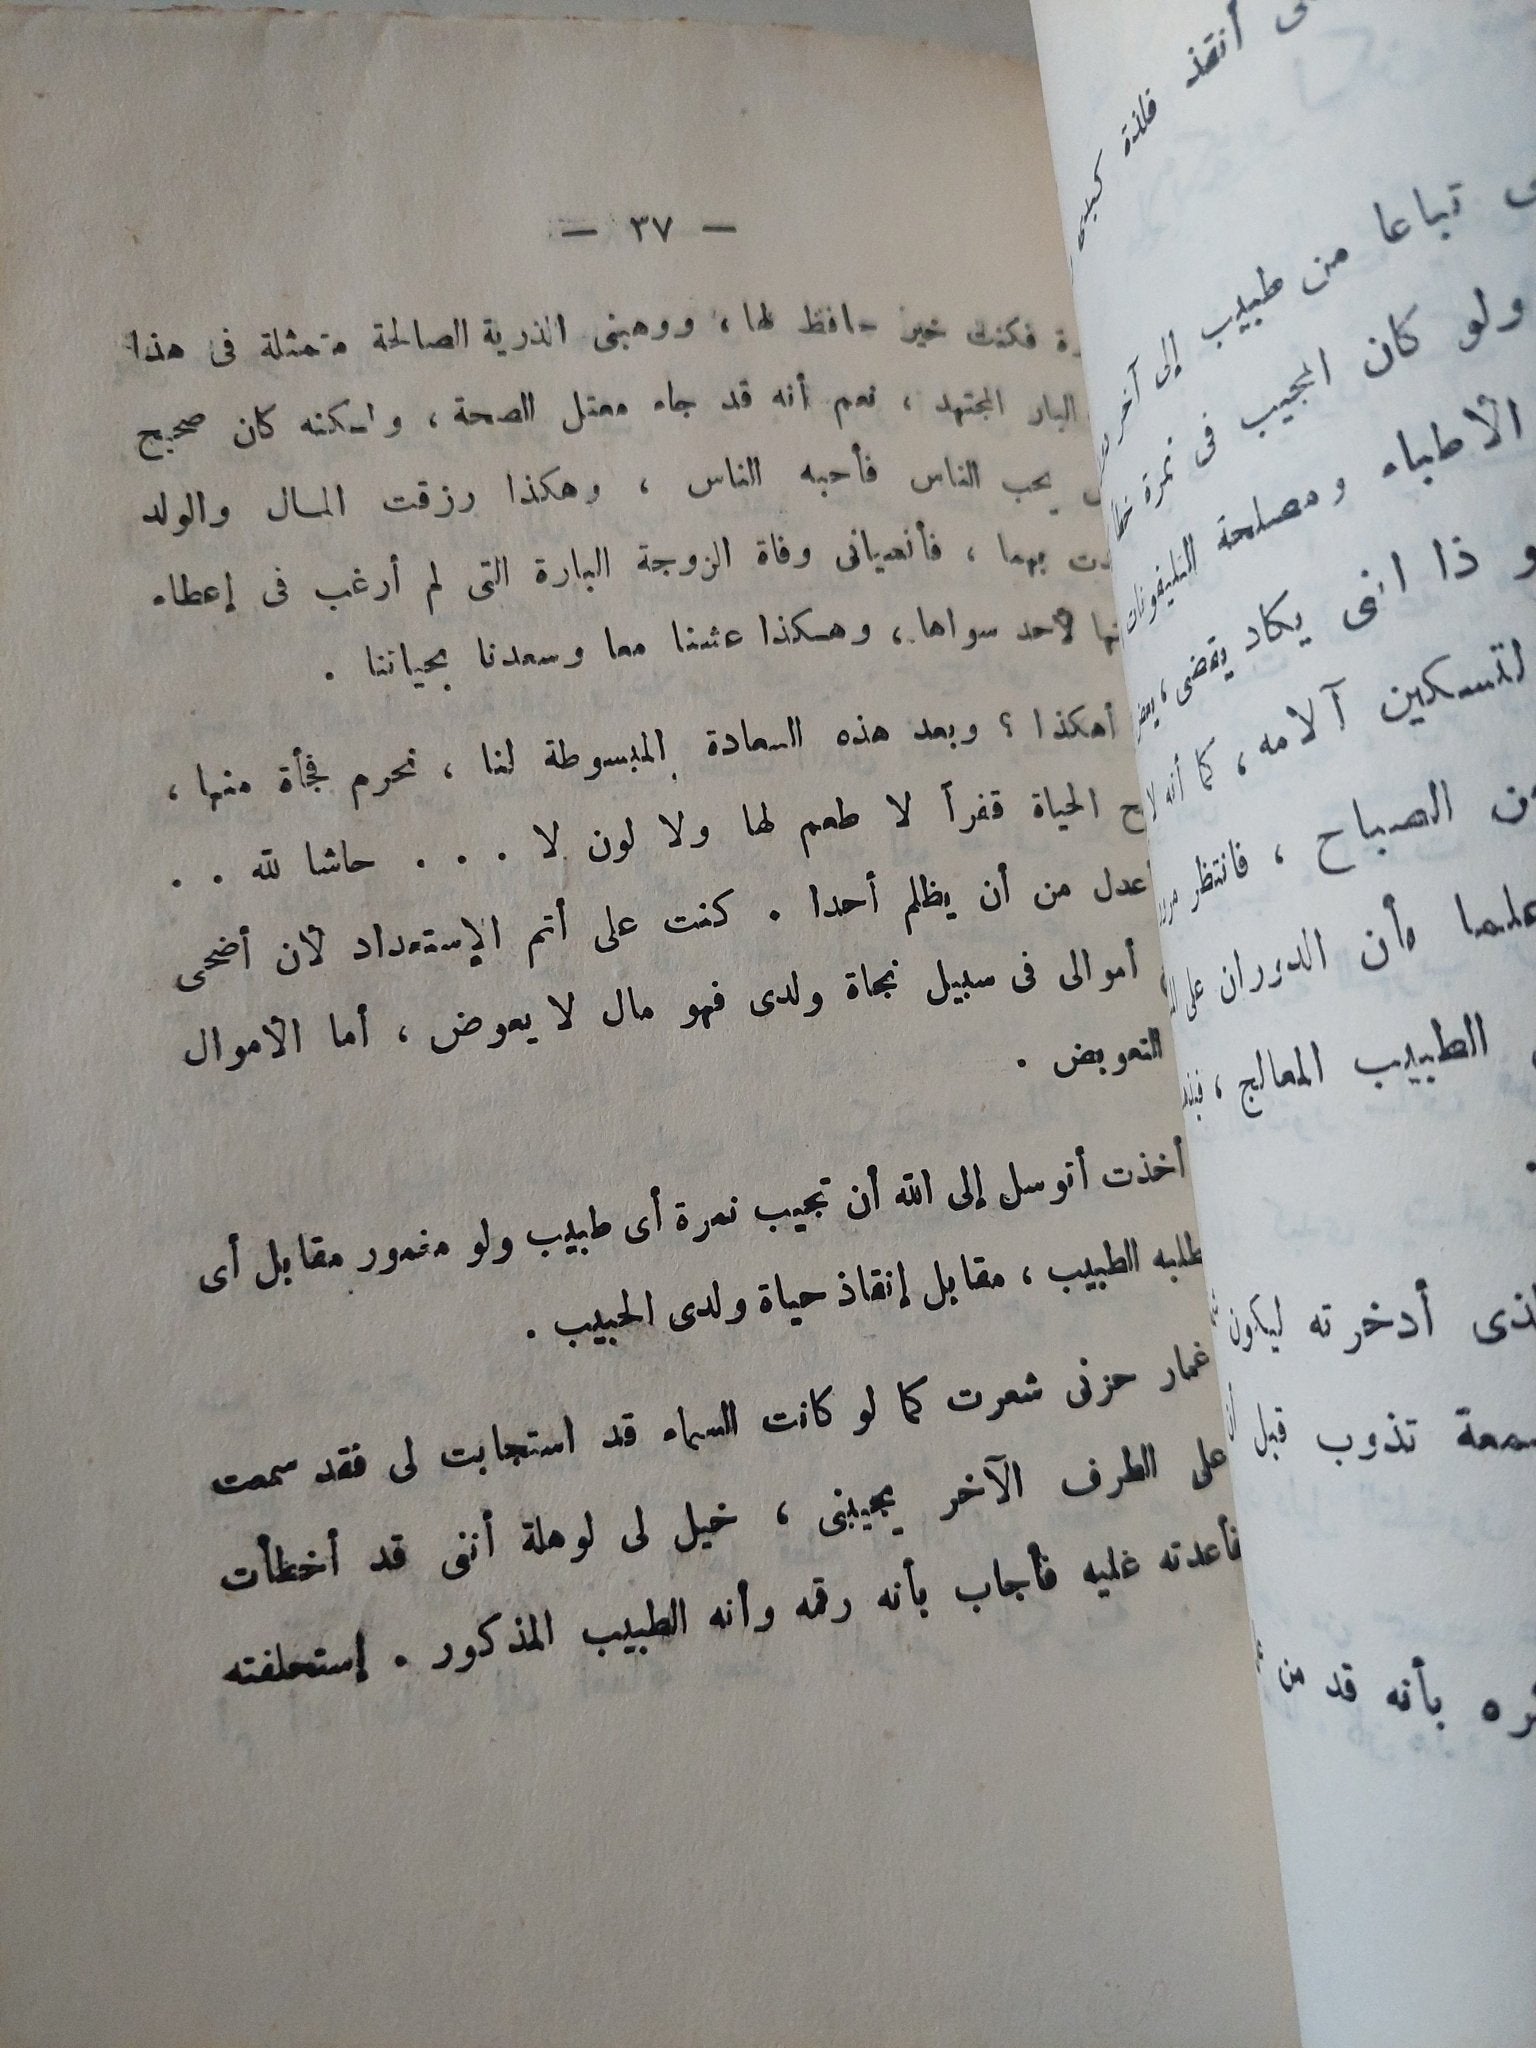 — ٣٧ —
فكنت خير حافظ لها ، ووهبنى الذرية الصالحة متمثلة فى هذا
البار المجتهد ، نعم أنه قد جاء معتل الصحة ، ولكنه كان صحيح
يحب الناس فأحبه الناس ، وهكذا رزقت المال والولد
بهما ، فأنسيانى وفاة الزوجة البارة التى لم أرغب فى إعطاء
لأحد سواها ، وهكذا عشنا معا وسعدنا بحياتنا .
أهكذا ؟ وبعد هذه السعادة المبسوطة لنا ، نحرم فجأة منها ،
الحياة قفراً لا طعم لها ولا لون لا . . . حاشا لله . .
أعدل من أن يظلم أحدا . كنت على أتم الإستعداد لأن أضحى
أموالى فى سبيل نجاة ولدى فهو مال لا يعوض ، أما الأموال
التعويض .
أخذت أتوسل إلى الله أن تجيب نمرة أى طبيب ولو مغمور مقابل أى
الطبيب ، مقابل إنقاذ حياة ولدى الحبيب .
غمار حزنى شعرت كما لو كانت السماء قد استجابت لى فقد سمعت
على الطرف الآخر يجيبنى ، خيل لى لوهلة أننى قد أخطأت
فأعدته عليه فأجاب بأنه رقمه وأنه الطبيب المذكور . إستحلفته
أنقذ فلذة كبدى
تباعا من طبيب إلى آخر
ولو كان المجيب فى نمرة خطأ
الأطباء ومصلحة التليفونات
ذا ابنى يكاد يقضى ،
لتسكين آلامه ، كما أنه
الصباح ، فانتظر
وأن الدوران على
الطبيب المعالج ،
أدخرته ليكون
تذوب قبل
بأنه قد من